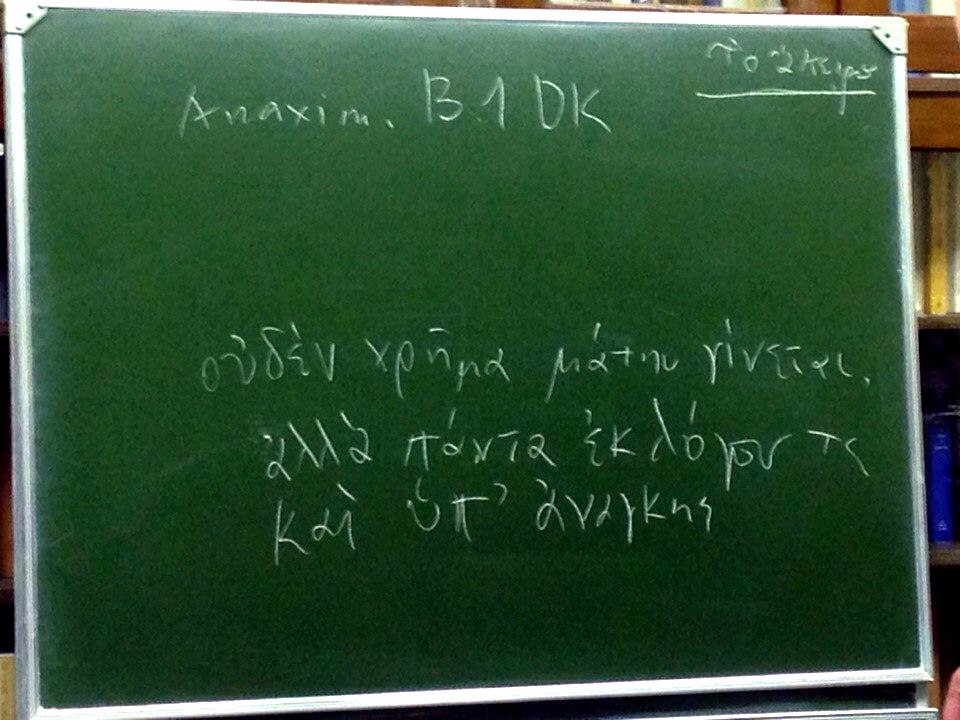 τὸ ἄπειρον
Anaxim. B1 DK
οὐδὲν χρῆμα μάτην γίνεται,
ἀλλὰ πάντα ἐκ λόγου τε
καὶ ὑπ’ ἀναγκης